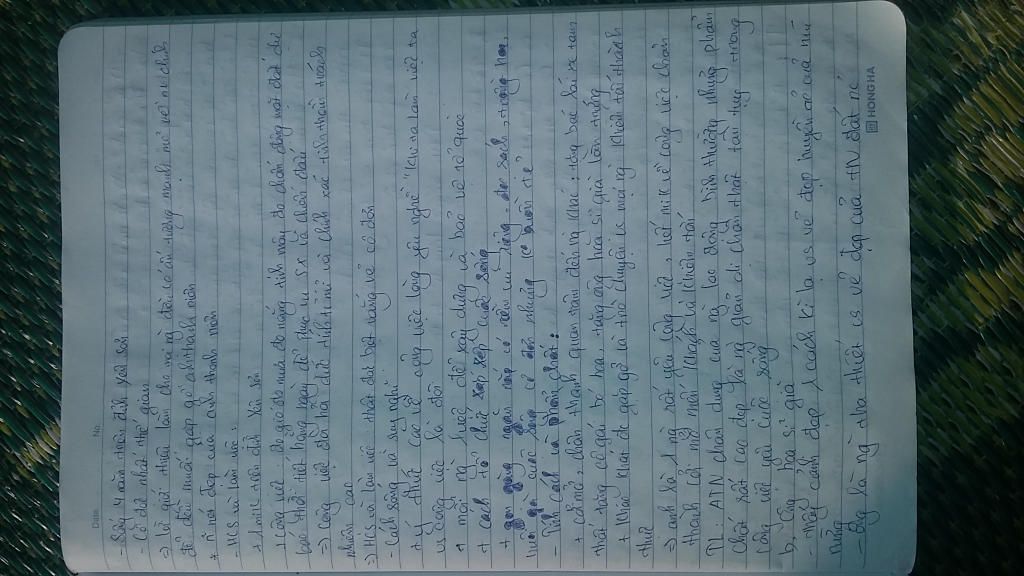 Date No.
- Sống 4 năm trên đỉnh yên sơn
- Cô độc nhất thế gian
=> lời giới thiệu làm cho mọi ng đều có ấn tượng mạnh mẽ với nv chính
để đều muốn gặp gỡ anh thanh niên
+ nét đẹp của anh thanh niên
- HCS và làm việc:
+ 1 mình trên đỉnh Yên Sơn
+ Công việc: đo gió đo mưa đo nắng tính mây đo chấn động mặt đất dự
báo thời tiết hằng ngày để phục vụ sx và chiến đấu
=> Công việc đòi hỏi sự tỉ mỉ và chính xác tinh thần trách
nhiệm cao
=> HCS và làm việc thật đặc biệt vắng vẻ cô đơn
- Cách sống và suy nghĩ:
+ ý thức cao về công việc lòng yêu nghề "khi ta làm việc ta
vs công việc là đôi
+ mong muốn để xây dựng và bảo vệ tổ quốc
+ cách tổ chức sắp xếp cuộc sống
+ gọn gàng ngăn nắp có vườn đọc sách, trồng hoa,
nuôi gà cuộc sống cô đơn nhưng k buồn tẻ
- Tính cách và phẩm chất:
+ cởi mở, chân thành quan tâm đến ng khác: tặng bác lái xe tam
thất tặng cô gái bó hoa, tặng ông họa sĩ già làn trứng
+ Khao khát đc gặp gỡ và trò chuyện vs mọi ng khiêm tốn thành
thực
=> anh là 1 ng rất yêu công việc, hết mình về công việc chân
thành cởi mở mến khách và khiêm tốn
TL: ATN chân dung của ng lao động bình thường những phẩm
chất rất cao đẹp là ng giản dị chân thật tận tụy trong
công việc yêu cuộc sống
b, Ông họa sĩ già
- Thấy cảnh đẹp 1 cách kì lạ vs vẻ đẹp huyền ảo của núi
rừng
- Ông là ng tha thiết vs vẻ đẹp của TN đất nc
HONG HA